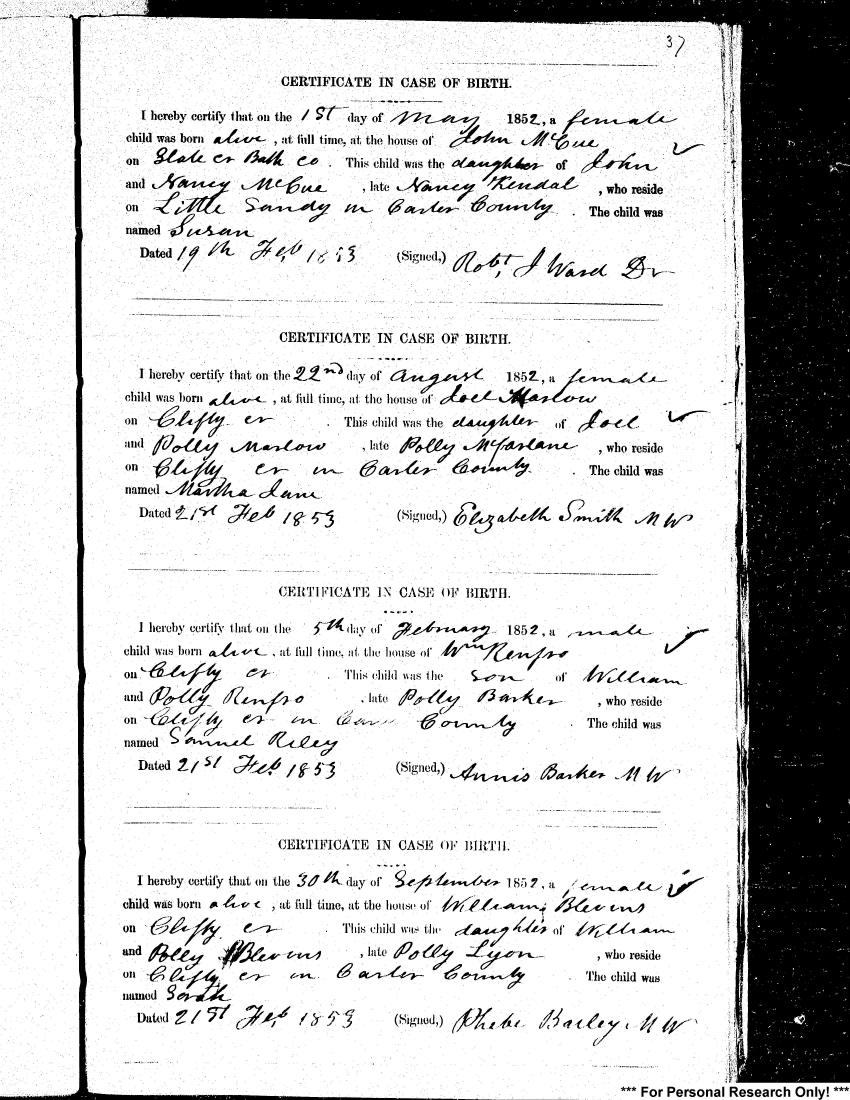 37
CERTIFICATE IN CASE OF BIRTH.
I hereby certify that on the 1st day of May 1852, a female
child was born alive, at full time, at the house of John McCue
on Slate cr Bath co. This child was the daughter of John
and Nancy McCue, late Nancy Kendal, who reside
on Little Sandy in Carter County. The child was
named Susan
Dated 19th Feb 1853 (Signed,) Robt, J Ward Dr
CERTIFICATE IN CASE OF BIRTH.
I hereby certify that on the 22nd day of August 1852, a female
child was born alive, at full time, at the house of Joel Marlow
on Clifty cr. This child was the daughter of Joel
and Polly Marlow, late Polly McFarlane, who reside
on Clifty cr in Carter County. The child was
named Martha Jane
Dated 21st Feb 1853 (Signed,) Elizabeth Smith MW
CERTIFICATE IN CASE OF BIRTH.
I hereby certify that on the 5th day of February 1852, a male
child was born alive, at full time, at the house of Wm Renfro
on Clifty cr. This child was the son of William
and Polly Renfro, late Polly Barker, who reside
on Clifty cr in County. The child was
named Samuel Riley
Dated 21st Feb 1853 (Signed,) Annis Barker MW
CERTIFICATE IN CASE OF BIRTH.
I hereby certify that on the 30th day of September 1852, a female
child was born alive, at full time, at the house of William Blevins
on Clifty cr. This child was the daughter of William
and Polly Blevins, late Polly Lyon, who reside
on Clifty cr in Carter County. The child was
named Sarah
Dated 21st Feb 1853 (Signed,) Phebe Barley MW
*** For Personal Research Only! ***